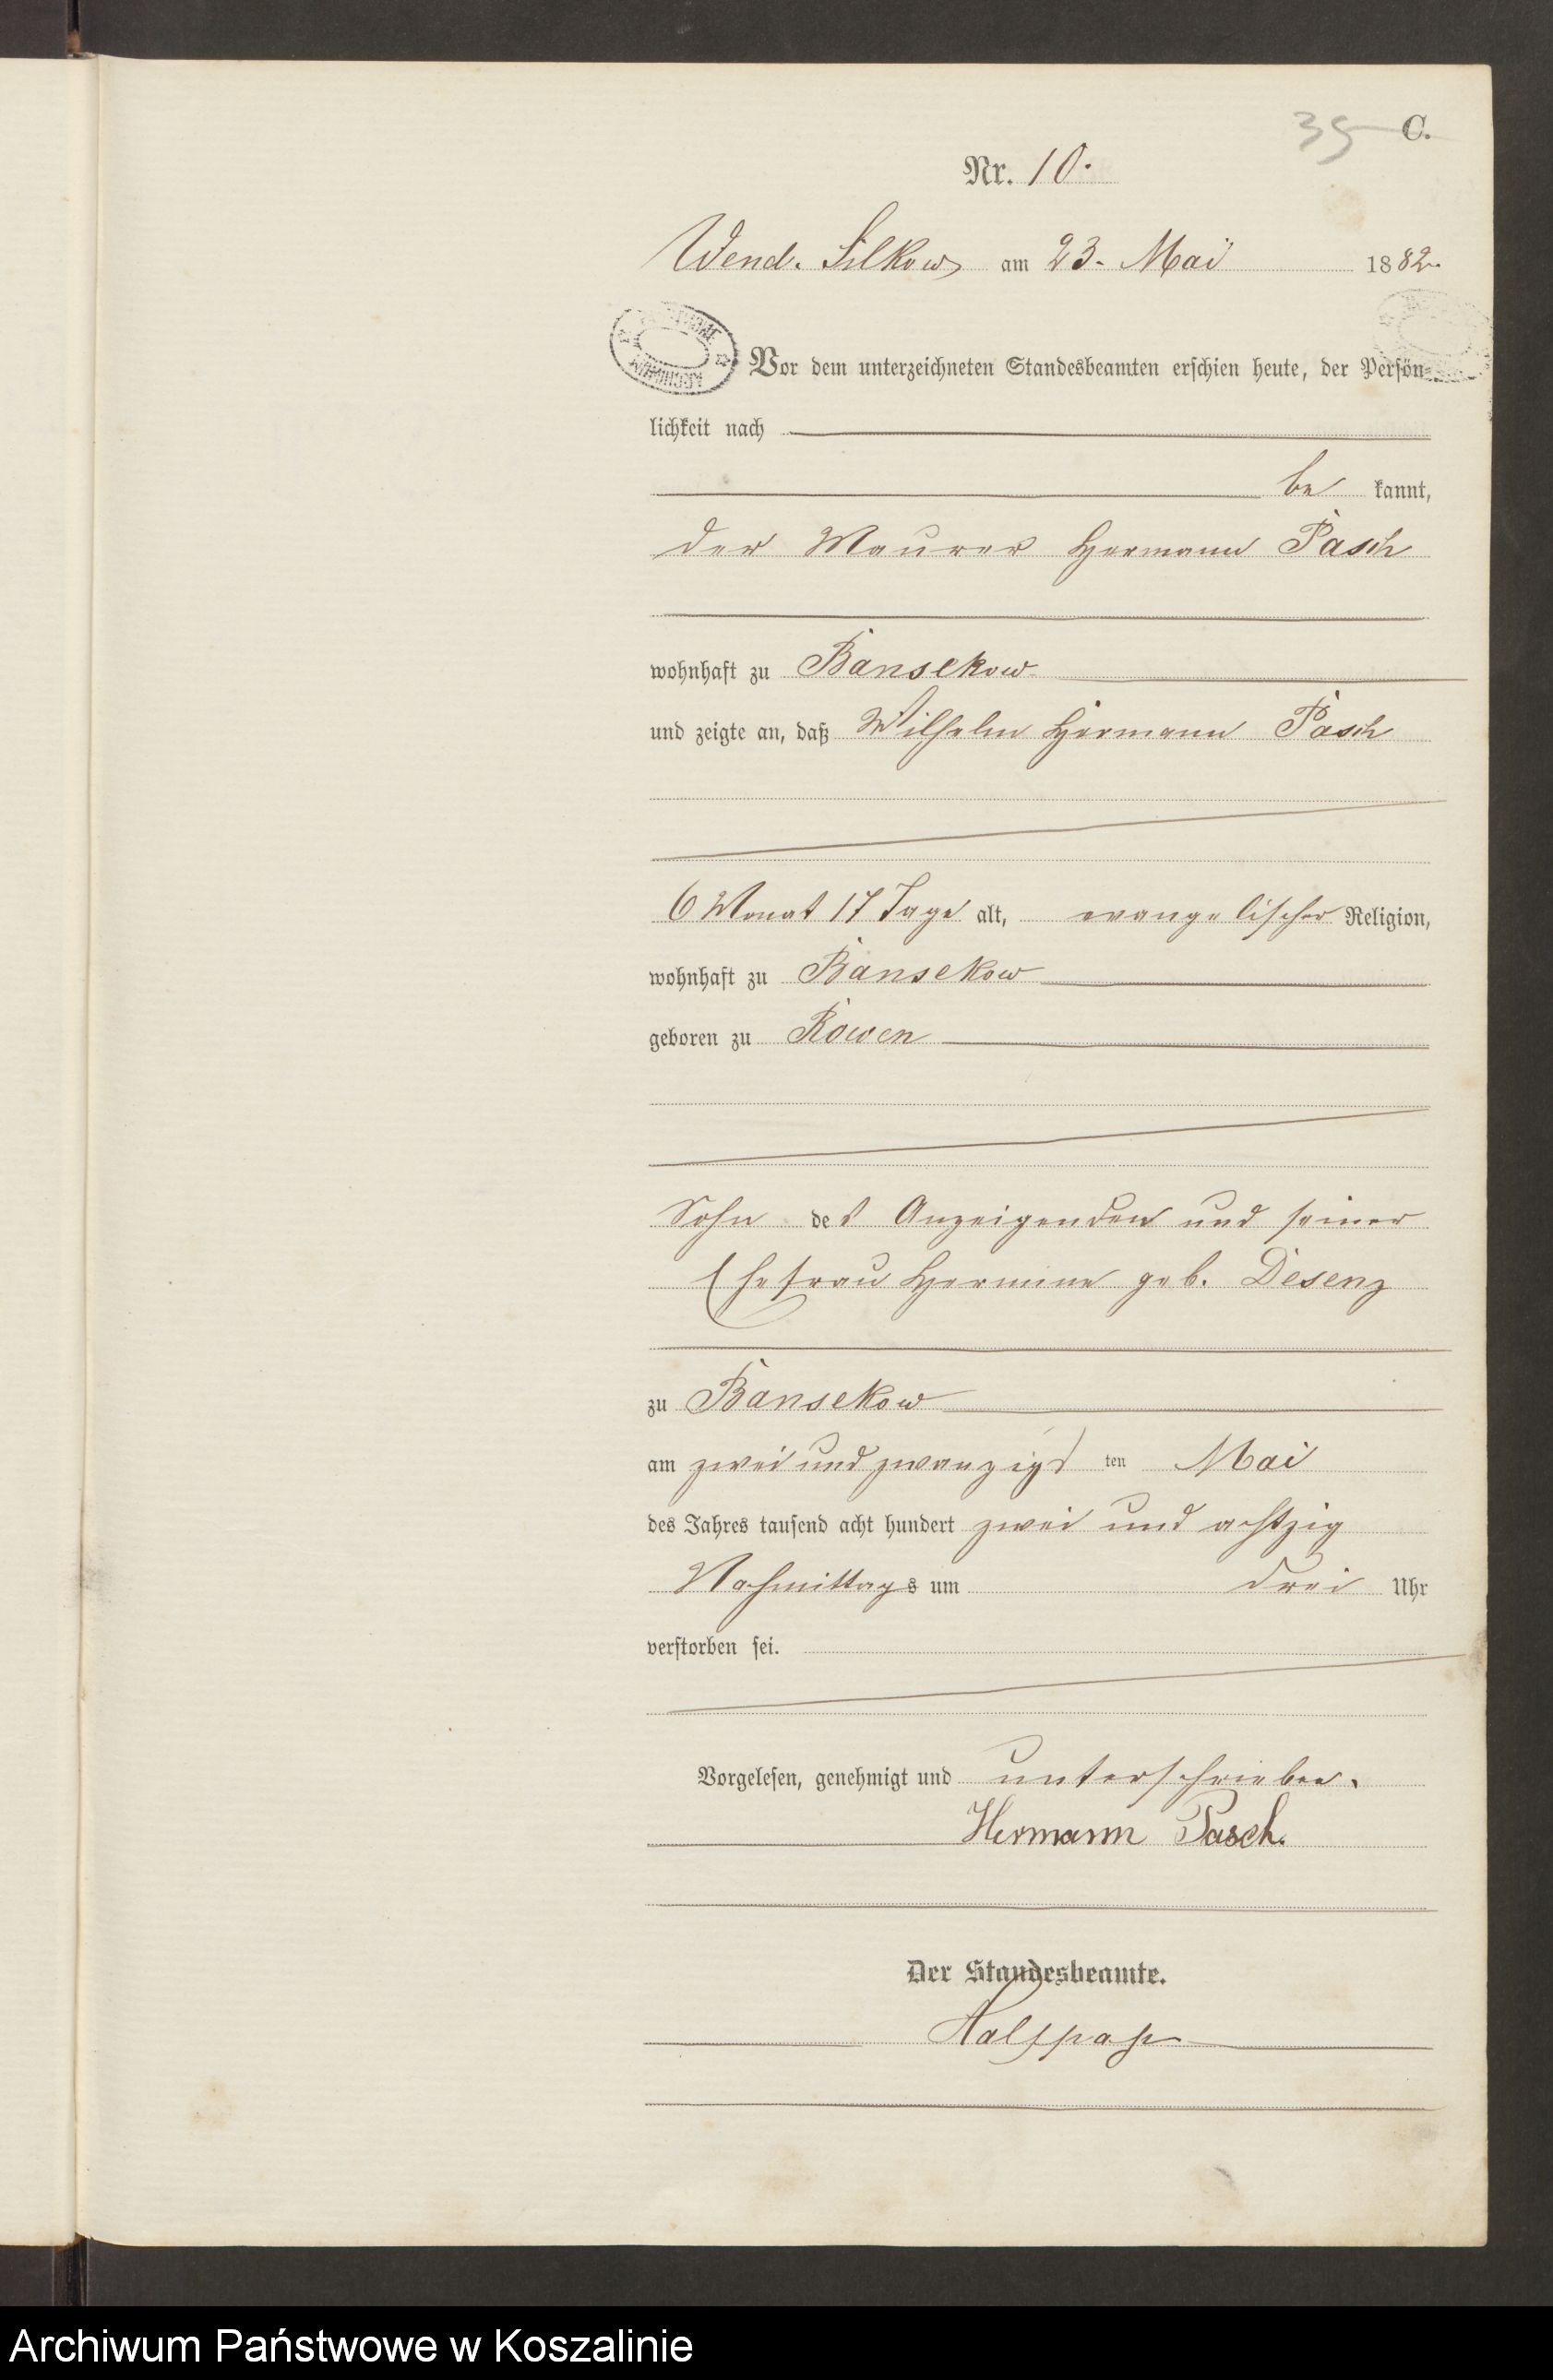 35 C.
Nr. 10.
Wend. Silkow am 23. Mai 1882.
Vor dem unterzeichneten Standesbeamten erschien heute, der Persön-
lichkeit nach
be kannt,
der Maurer Hermann Pasch
wohnhaft zu Bansekow
und zeigte an, daß Wilhelm Hermann Pasch
6 Monat 17 Tage alt, evangelischer Religion,
wohnhaft zu Bansekow
geboren zu Rowen
Sohn des Anzeigenden und seiner
Ehefrau Hermine geb. Desenz
zu Bansekow
am zwei und zwanzigs ten Mai
des Jahres tausend acht hundert zwei und achtzig
Nachmittags um drei Uhr
verstorben sei.
Vorgelesen, genehmigt und unterschrieben.
Hermann Pasch.
Der Standesbeamte.
Archiwum Państwowe w Koszalinie